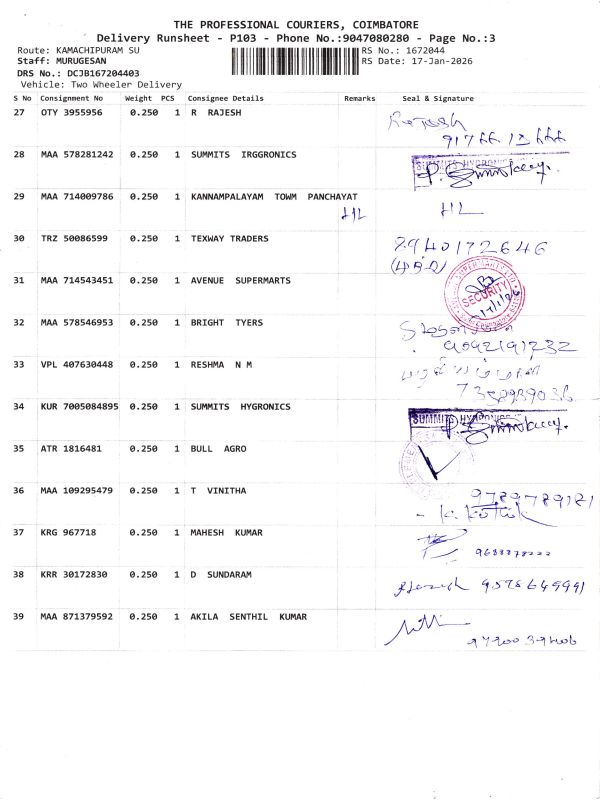 THE PROFESSIONAL COURIERS, COIMBATORE
Delivery Runsheet - P103 - Phone No.:9047080280 - Page No.:3
Route: KAMACHIPURAM SU RS No.: 1672044
Staff: MURUGESAN RS Date: 17-Jan-2026
DRS No.: DCJB167204403
Vehicle: Two Wheeler Delivery
S No Consignment No Weight PCS Consignee Details Remarks Seal & Signature
27 OTY 3955956 0.250 1 R RAJESH Rajesh
28 MAA 578281242 0.250 1 SUMMITS IRGGRONICS SUMMITS HYGRONICS
29 MAA 714009786 0.250 1 KANNAMPALAYAM TOWM PANCHAYAT
30 TRZ 50086599 0.250 1 TEXWAY TRADERS 8940172646
31 MAA 714543451 0.250 1 AVENUE SUPERMARTS SECURITY
32 MAA 578546953 0.250 1 BRIGHT TYERS 9092191232
33 VPL 407630448 0.250 1 RESHMA N M
34 KUR 7005084895 0.250 1 SUMMITS HYGRONICS SUMMITS HYGRONICS
35 ATR 1816481 0.250 1 BULL AGRO
36 MAA 109295479 0.250 1 T VINITHA 9789789181
37 KRG 967718 0.250 1 MAHESH KUMAR
38 KRR 30172830 0.250 1 D SUNDARAM 9578649991
39 MAA 871379592 0.250 1 AKILA SENTHIL KUMAR